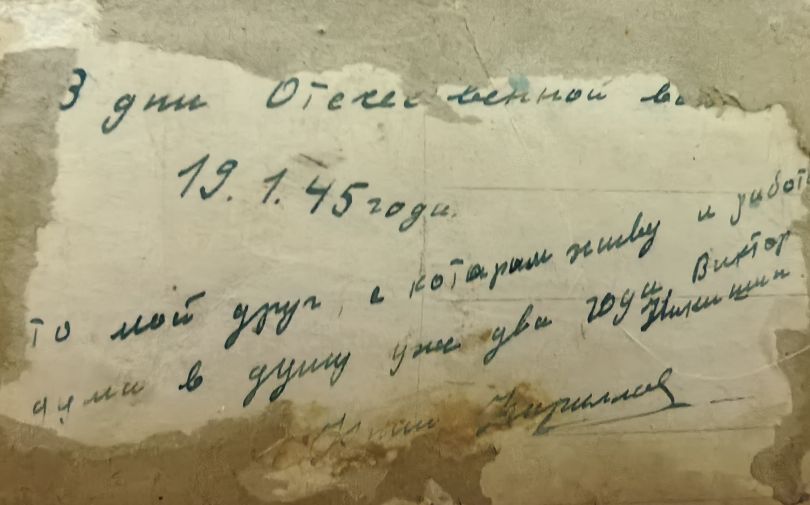 В дни Отечественной в
19.1.45 года.
то мой друг, с котарам живу и работ
душа в душу уже два года Виктор
Никишин
Кириллов